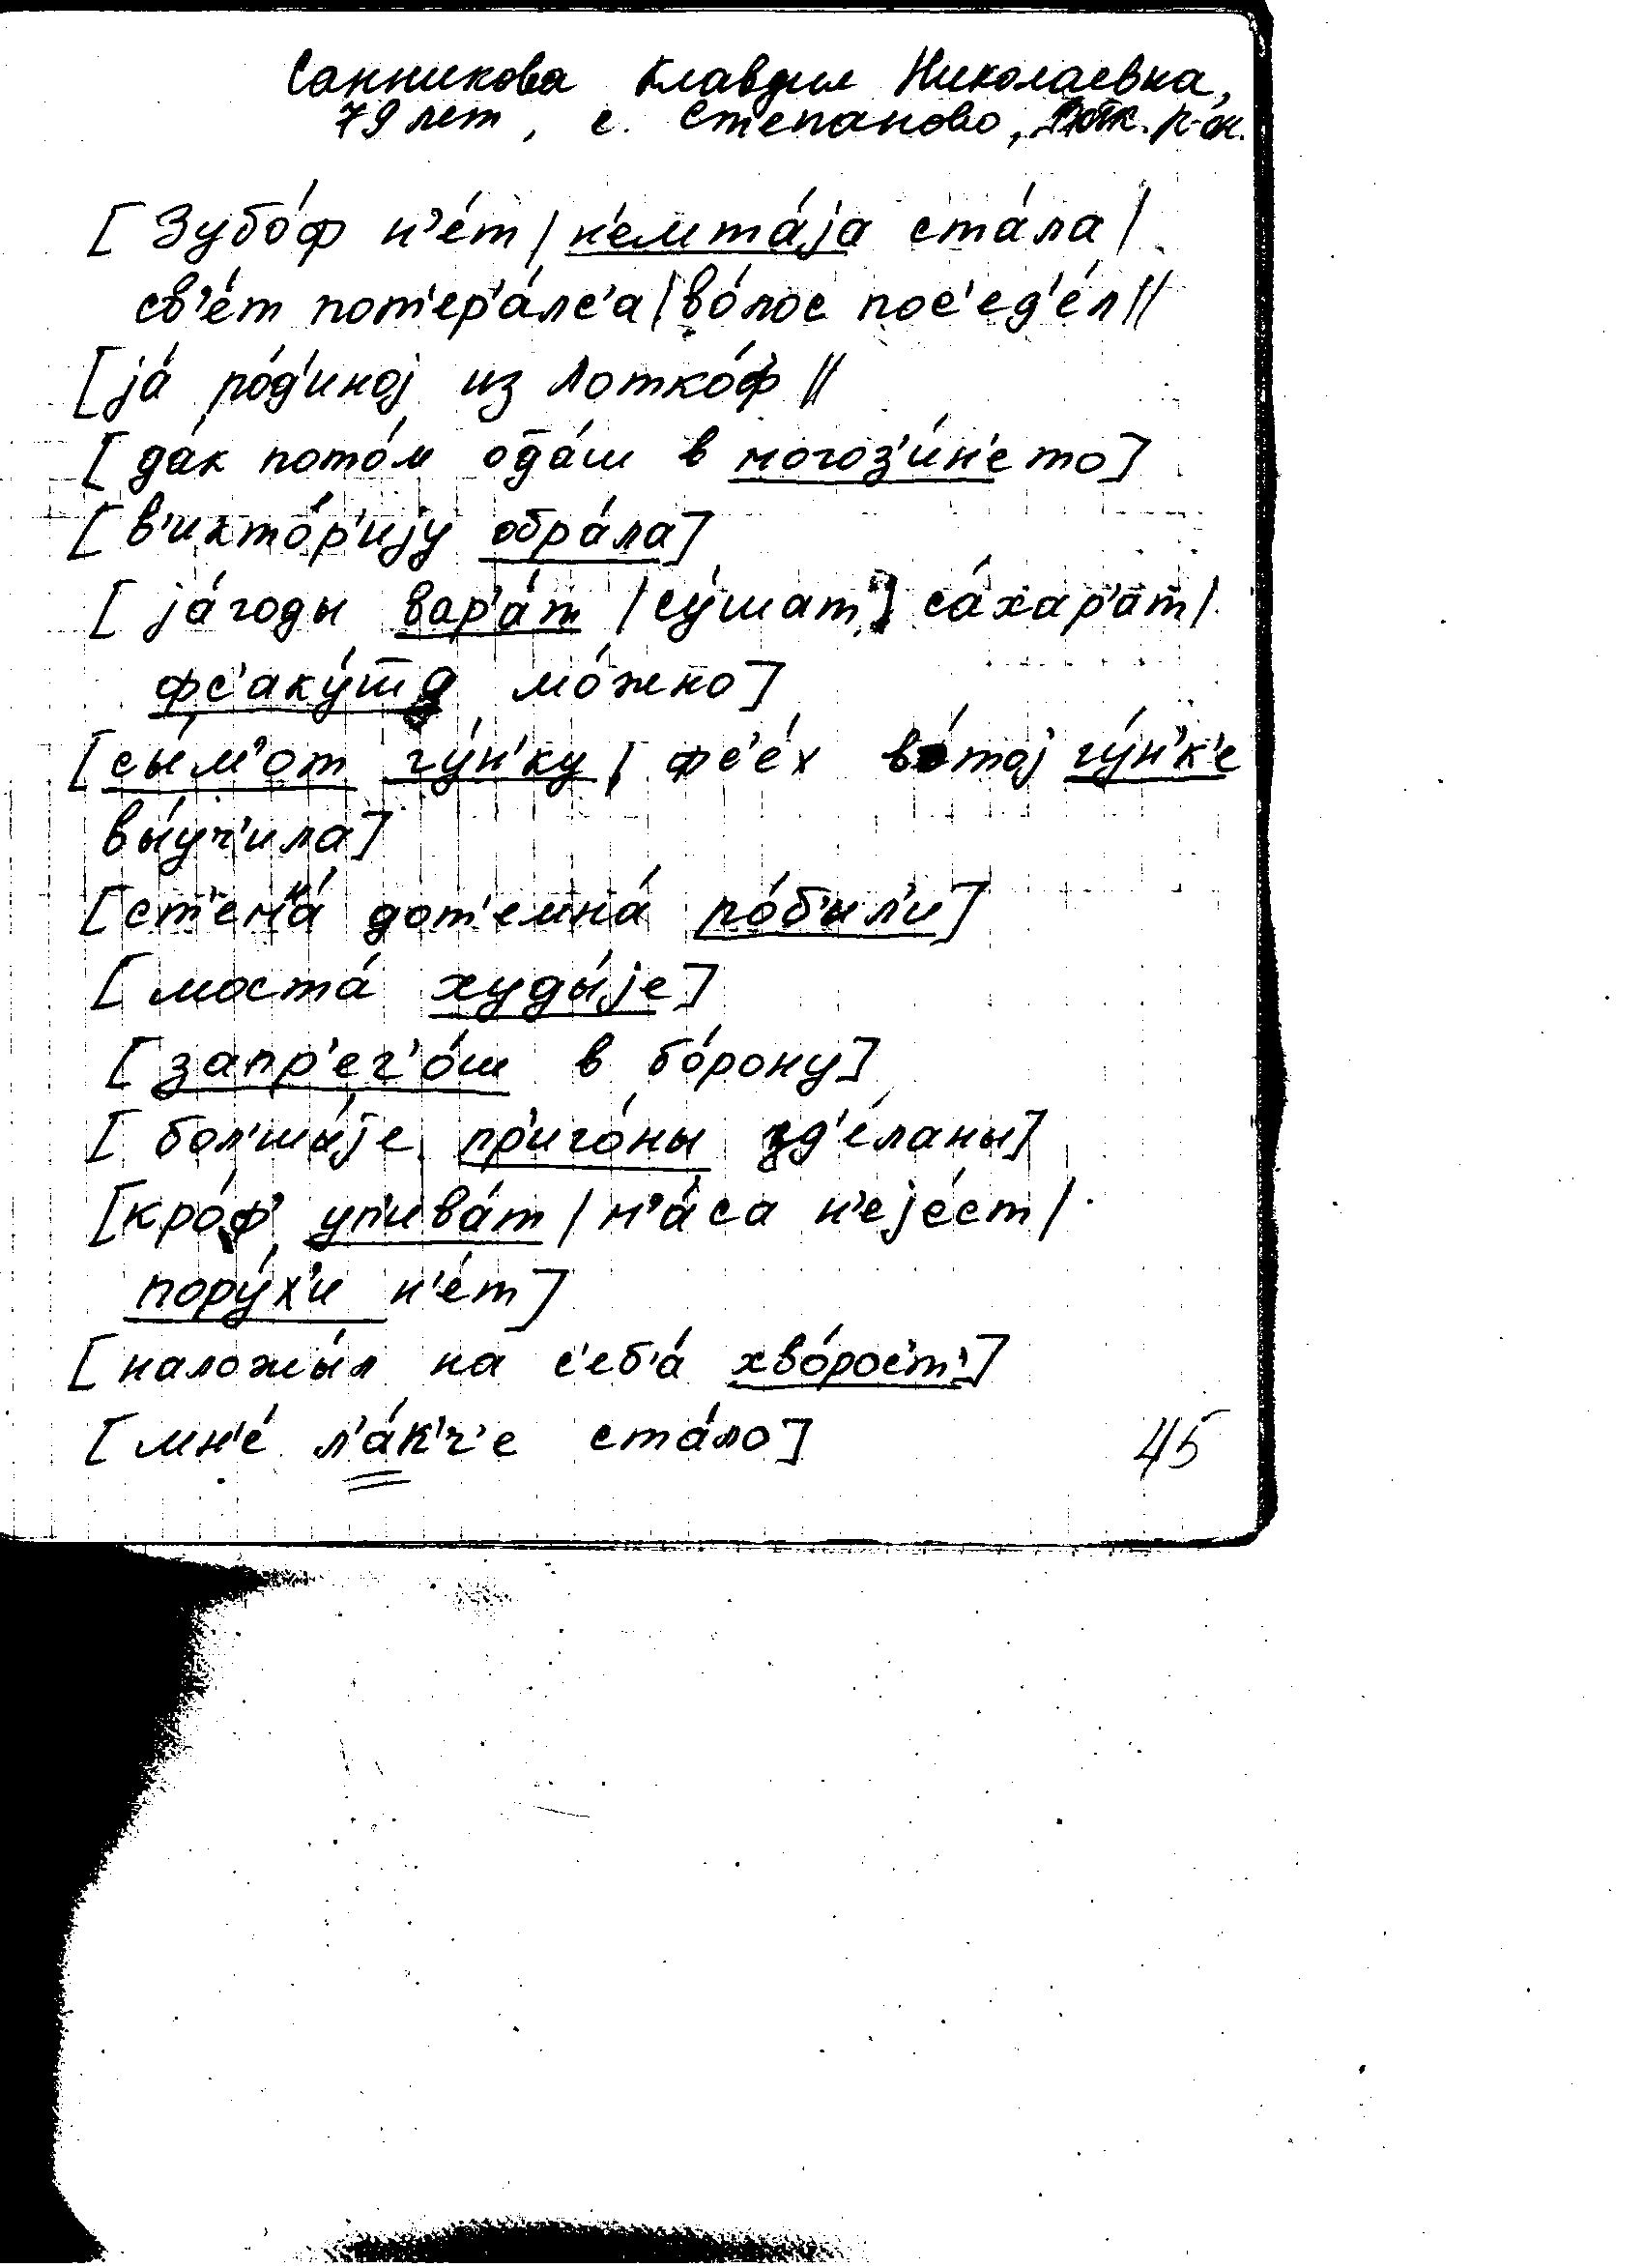 Санникова Клавдия Николаевна,
79 лет, с. Степаново, р-он.
[Зубо́ф н'е́т | н'емта́jа ста́ла |
св'е́т пот'ер'а́лс'а | во́лос пос'ед'е́л ||
[jа́ ро́д'иноj из Лотко́ф ||
[да́к пото́м ода́ш в могоз'и́н'е то]
[в'икто́р'иjу обра́ла]
[jа́годы вар'а́т | су́шат'] са́хар'ат |
фс'аку́ мо́жно]
[сы́м'от гу́н'ку | фс'е́х в э́тоj гу́н'к'е
вы́уч'ила]
[ст'емна́ дот'емна́ ро́б'ил'и]
[моста́ худы́jе]
[запр'ег'о́ш в бо́рону]
[бол'шы́jе пр'иго́ны зд'е́ланы]
[кро́ф' уп'ива́т | м'а́са н'еjе́ст |
пору́х'и н'е́т]
[наложы́л на с'еб'а́ хво́рос'т']
[мн'е́ л'а́к'ч'е ста́ло]
45